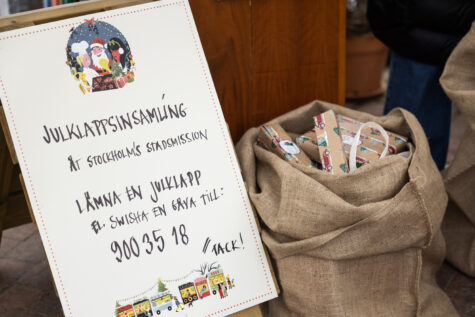 JULKLAPPSINSAMLING
ÅT STOCKHOLM'S STADSMISSION
LÄMNA EN JULKLAPP
EL. SWISHA EN GÅVA TILL:
900 35 18
//TACK!